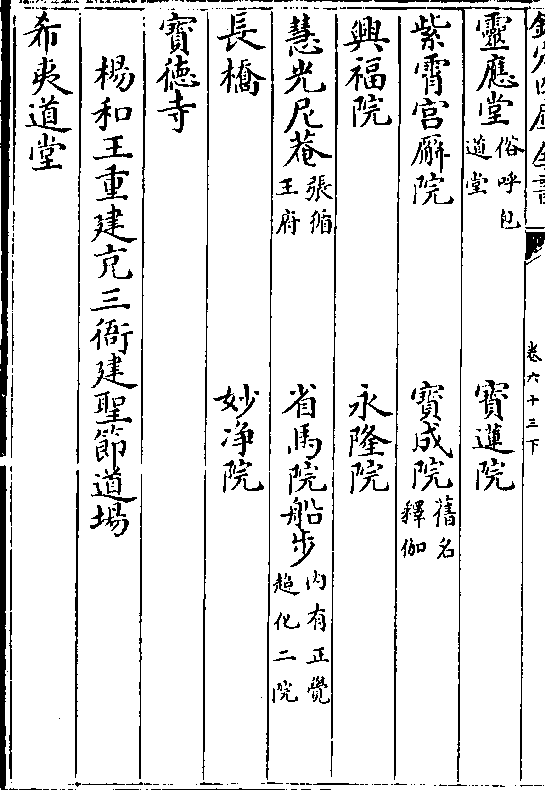 欽定四庫全書
卷六十三下
靈應堂俗呼包道堂 寶蓮院
紫霄宫廨院 寶成院舊名釋伽
興福院 永隆院
慧光尼菴張循王府 省馬院船步内有正覺超化二院
長橋 妙净院
寶德寺
楊和王重建充三衙建聖節道場
希夷道堂